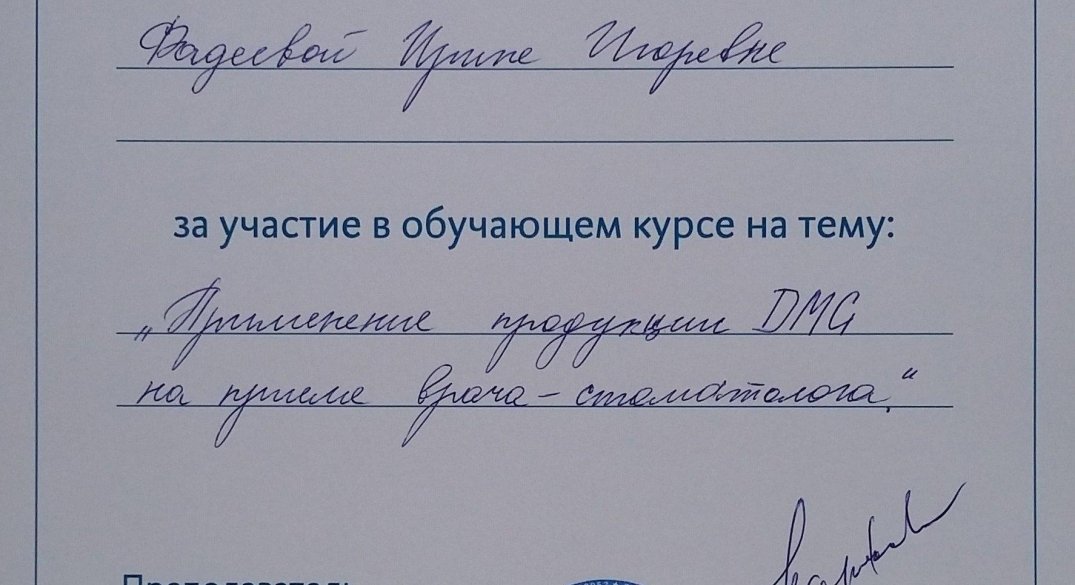 Фадеевой Ирине Игоревне
за участие в обучающем курсе на тему:
„Применение продукции DMG
на приеме врача-стоматолога."
Преподаватель